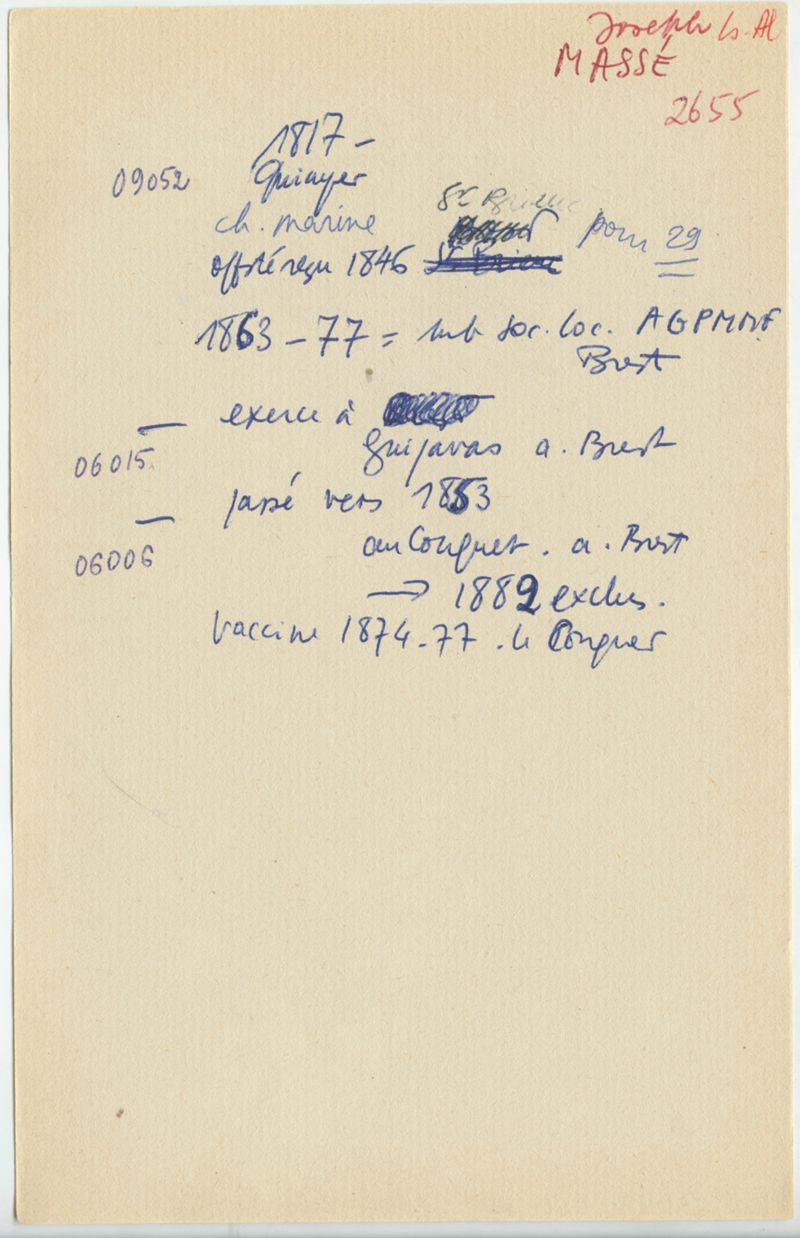 Joseph Ls. Al
MASSÉ
2655
1817 -
09052 Quimper
St Brieuc
ch. marine pour 29
off sté reçu 1846 St Brieuc
1863 - 77 = mb soc. loc. AGPMMF
Brest
- exerce à
06015 Guipavas a. Brest
- passé vers 1853
06006 au Conquet. a. Brest
→ 1882 exclus.
Vaccine 1874-77. le Conquet